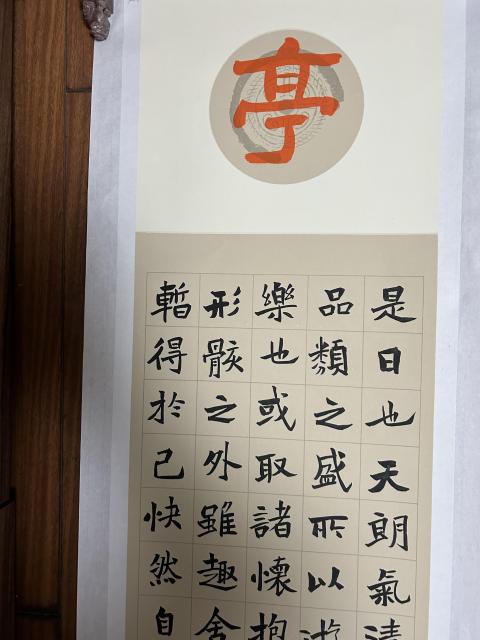 亭
是日也天朗氣清
品類之盛所以遊
樂也或取諸懷抱
形骸之外雖趣舍
暫得於己快然自